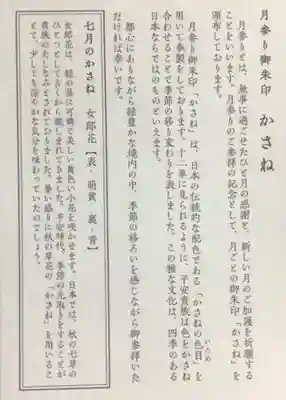 月参り御朱印 かさね
月参りとは、無事に過ごせたひと月の感謝と、新しい月のご加護を祈願する
ことをいいます。月参りのご参拝の記念として、月ごとの御朱印「かさね」を
頒布しております。
月参り御朱印「かさね」は、日本の伝統的な配色である「かさねの色目」を
いろめ
用いて奉製をしております。十二単に見られるように、平安貴族は色をかさね
合わせることで季節の移り変わりを表しました。この雅な文化は、四季のある
日本ならではのものといえます。
都心にありながら緑豊かな境内の中、季節の移ろいを感じながら御参拝いた
だければ幸いです。
七月のかさね 女郎花【表・萌黄 裏・青】
女郎花は、緑の葉に可憐で美しい黄色い小花を咲かせます。日本では、秋の七草の
ひとつとして古くから親しまれてきました。平安時代、季節の先取りをすることが
貴族のたしなみとされておりました。暑い盛りに秋の草花の「かさね」を用いるこ
とで、少しでも涼やかな気分を味わっていたのでしょう。